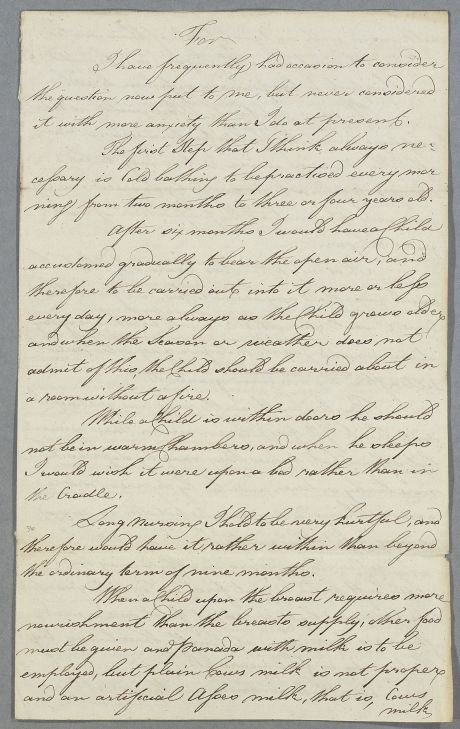 For
I have frequently had occasion to consider
the question now put to me, but never considered
it with more anxiety than I do at present.
The first Step that I think always ne=
cessary is Cold bathing to be practised every mor
ning from two months to three or four years old.
After six months I would have a Child
accustomed gradually to bear the open air, and
therefore to be carried out into it more or less
every day, more always as the Child grows older
and when the Season or weather does not
admit of this, the Child should be carried about in
a room without a fire.
While a Child is within doors he should
not be in warm Chambers, and when he sleeps
I would wish it were upon a bed rather than in
the Cradle.
Long Nursing I hold to be very hurtful, and
therefore would have it rather within than beyond
the ordinary term of nine months.
When a Child upon the breast requires more
nourishment than the breasts supply, other food
must be given and Panada with milk is to be
employed, but plain Cows milk is not proper
and an artificial Asses milk, that is, Cows
milk